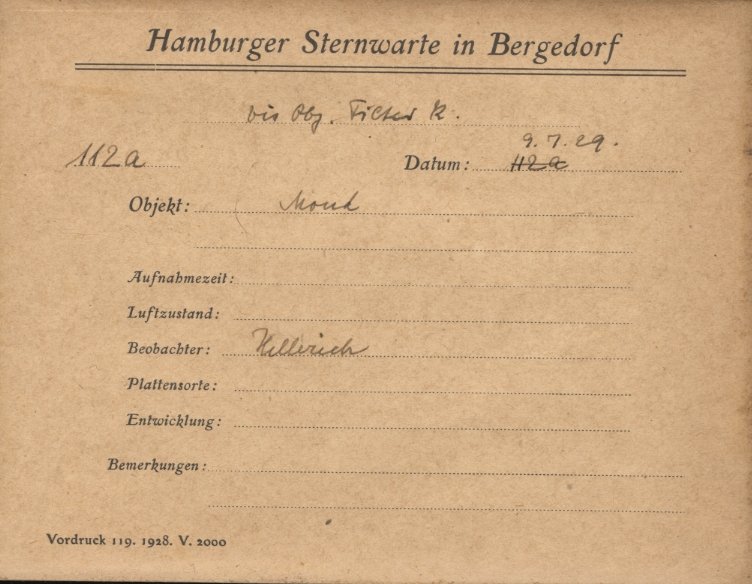 Hamburger Sternwarte in Bergedorf
vis Obj. Filter K.
9.7.29.
112a Datum: 112a
Objekt: Mond
Aufnahmezeit:
Luftzustand:
Beobachter: Hellerich
Plattensorte:
Entwicklung:
Bemerkungen:
Vordruck 119. 1928. V. 2000